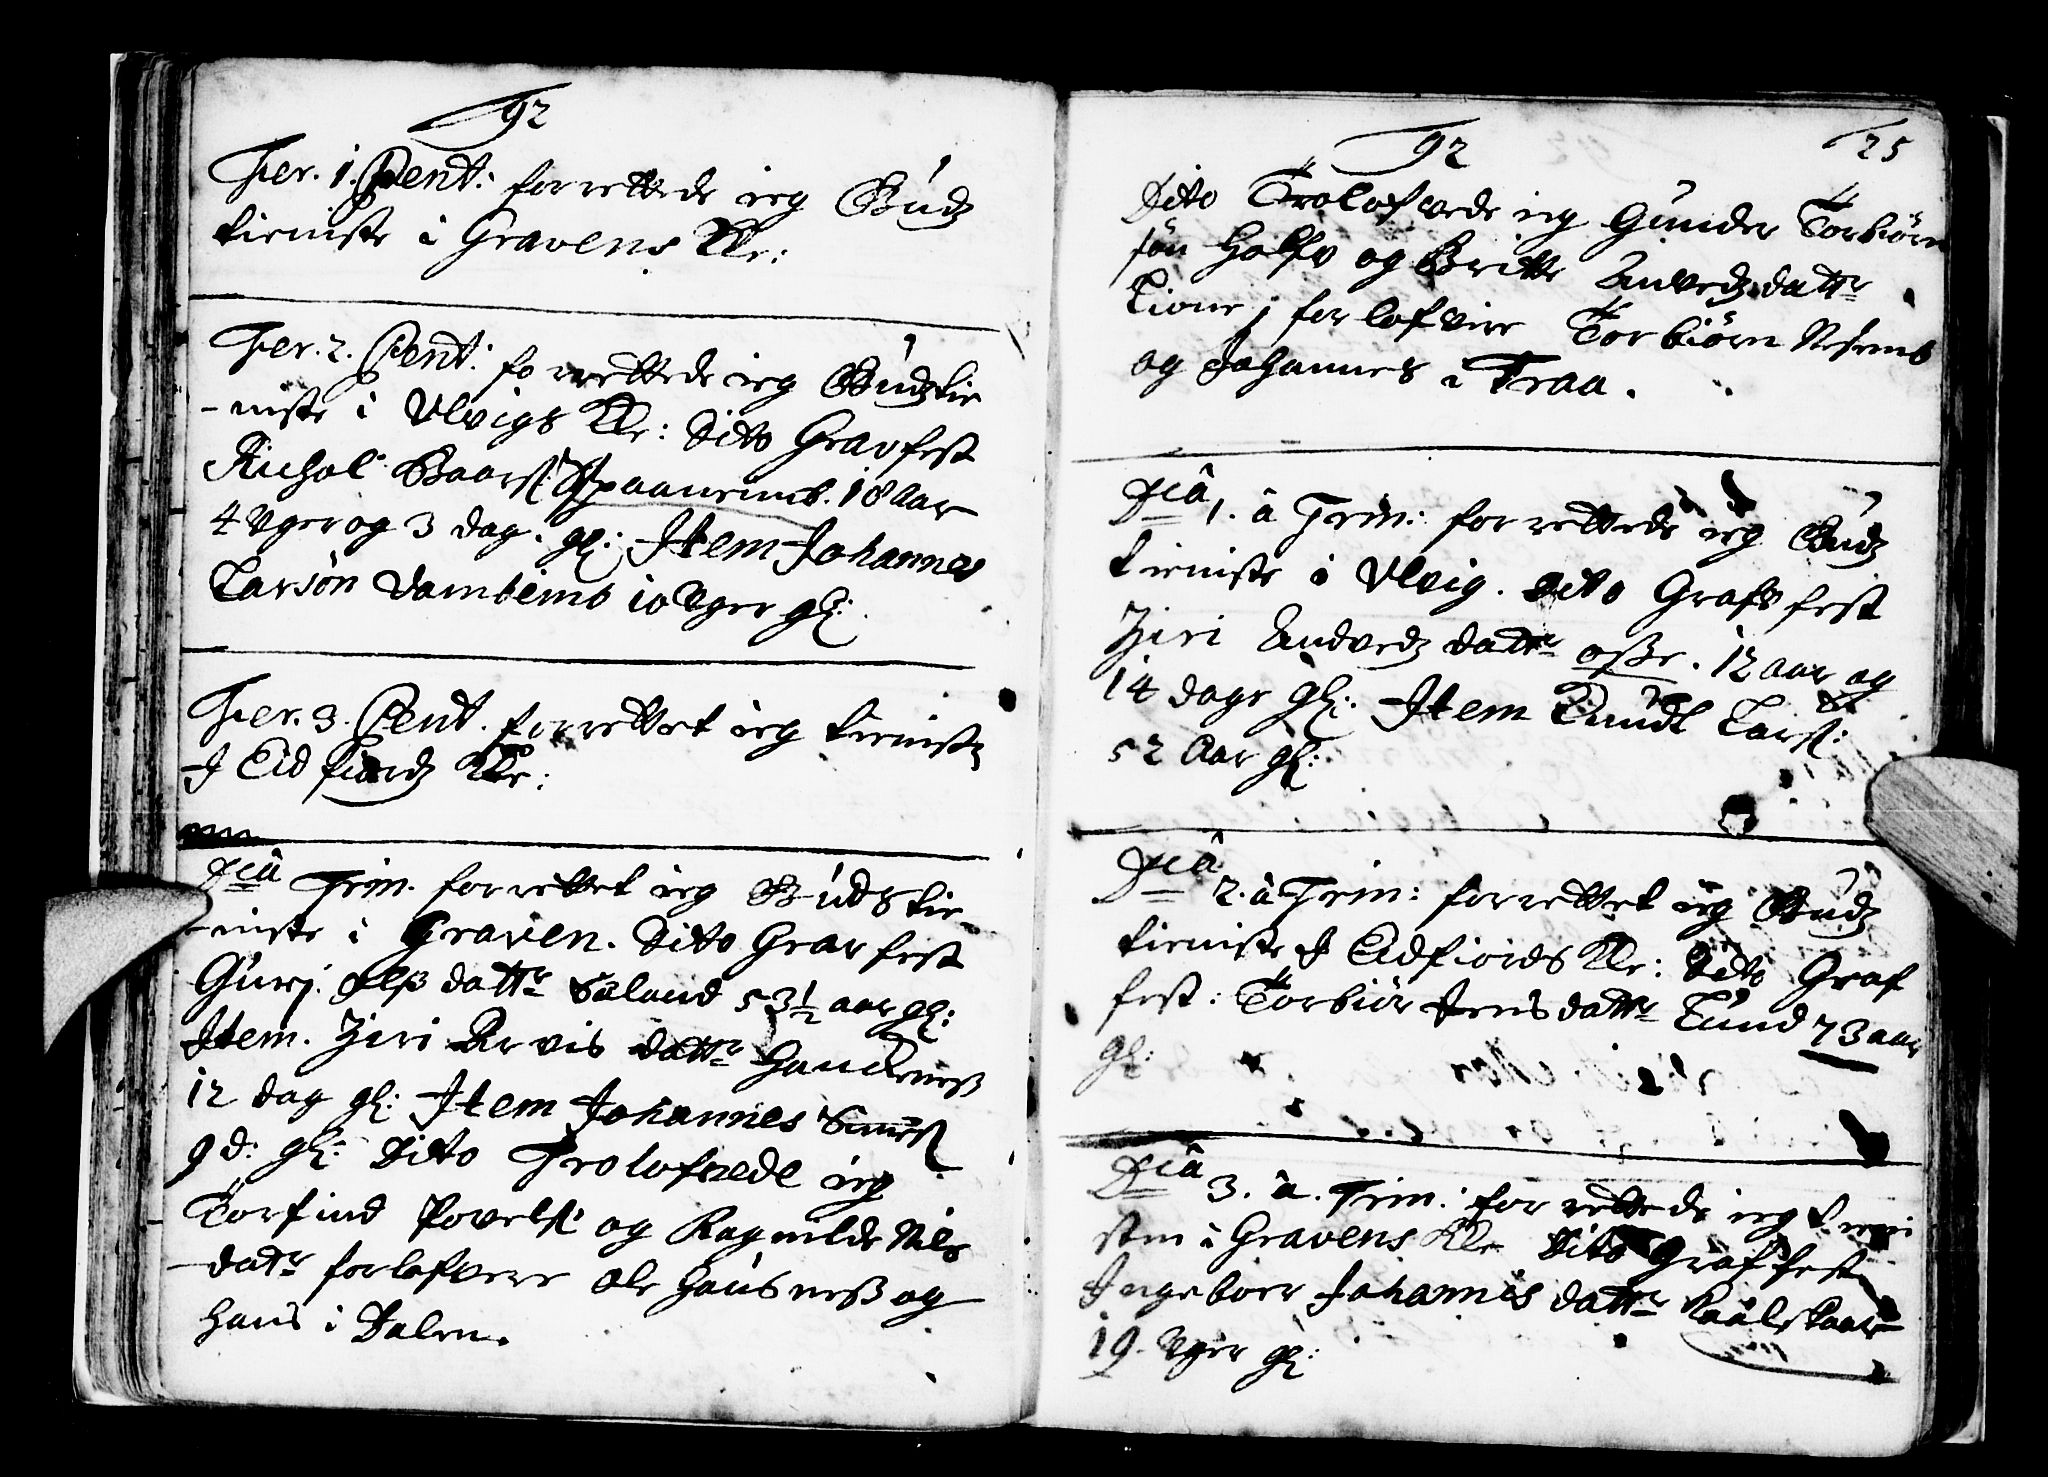 92
Fer. 1. Pent: forrettede ieg Gudz
tieniste i Gravens Kir:
Fer. 2. Pent: forrettede ieg Gudztie
-niste i Ulvigs Kir: Dito Gravfest
Richol Baars: Spaanemb. 18 Aar
4 Uger og 3 dag. gl: Item Johannes
Larsøn Vambemb 10 Uger gl:
Fer. 3. Pent. forrettet ieg tienisten
I Eidfiordz Kir:
Dcâ Trin. forrettet ieg Gudstie
-niste i Graven. Dito Gravfest
Guri datter 53½ aar gl:
Item. Ziri Arvis datter
12 dag gl: Item Johannes
9 d: gl: Dito Trolofvede ieg
Torfind Povels: og Ragnilde Nils
datr forlofvere Ole Hausneß og
Hans i Dalen.
92
25
Dito Trolofvede ieg Gunder Torbiørn
søn og Britte Andvedz datter
Tione, forlofvere Torbiørn
og Johannes i Traa.
Dcâ 1. â Trin: forrettede ieg Gudz
tieniste i Ulvig. Dito Grafs fest
Ziri Andvedz datter Osße. 12 aar og
14 dage gl: Item Knudt Lars:
52 Aar gl:
Dcâ 2. â Trin: forrettet ieg Gudz
tieniste I Eidfiords Kir: Dito Graf
fest: Torbiør Jens datter Lund 73 aar
gl:
Dcâ 3. â. Trin: forrettede ieg tieni
sten i Gravens Kir Dito Graffest
Ingeboer Johannis datter
19. Uger gl: